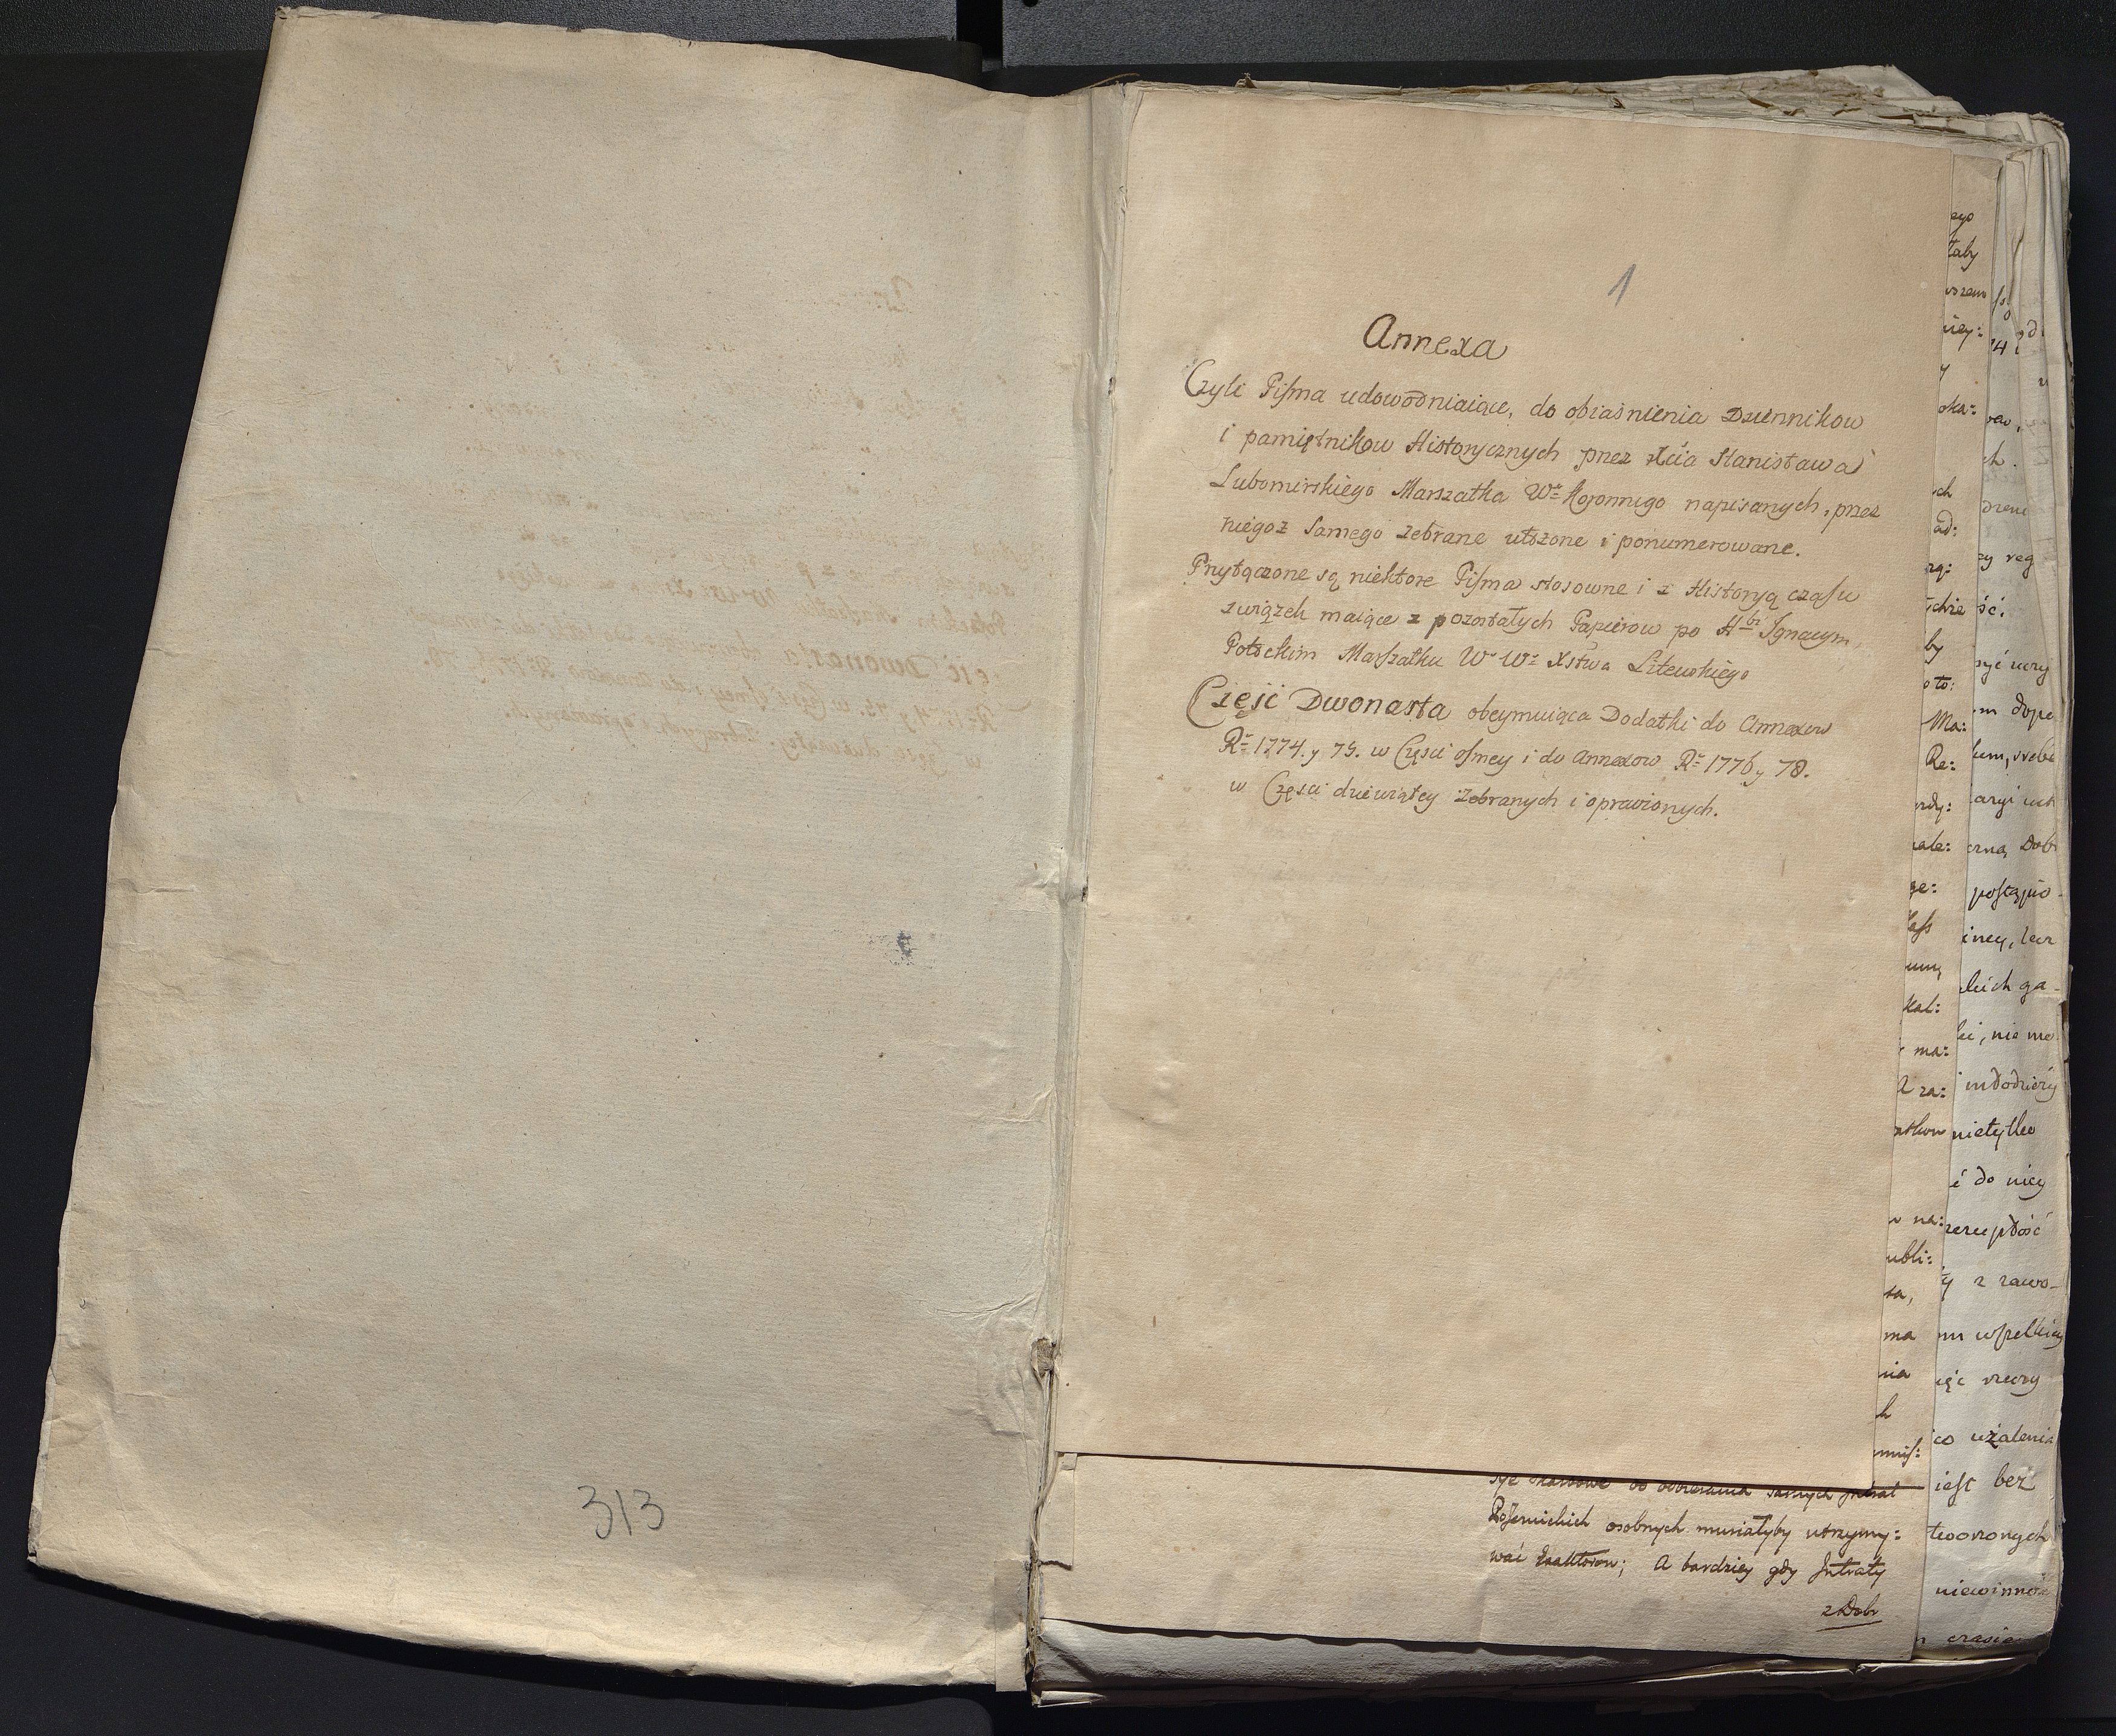 313
1
Annexa
Czyli Pisma udowodniaiące, do obiaśnienia Dziennikow
i pamiętnikow Historycznych przez Xcia Stanisława
Lubomirskiego Marszałka Wº Koronnego napisanych, przez
niegoż samego zebrane ułożone i ponumerowane.
Przyłączone są niektore Pisma stosowne i z Historyą czasu
związek maiące z pozostałych Papierow po Hbi Ignacym
Potockim Marszałku Wº Wº Xstwa Litewskiego
Część Dwonasta obeymuiąca Dodatki do Annexow
Rº 1774. y 75. w Częsci osmey i do Annexow Rº 1776 y 78.
w Częsci dziewiątey zebranych i oprawionych.
osobnych musiałyby utrzymy:
wać Exaktorow; A bardziey gdy Intraty
z Dobr
ego
taby
niey:
y
oka:
ch
ad:
by
oto:
Ma:
Re:
ale:
ge:
kal:
ma:
A za:
w na:
ubli:
ta,
ma
nia
h
zy reg
ść:
być
m dope
Dob
postąpio-
iney, lecz
lkich ga-
ki, nie mo
nietylko
ć do niey
y z zawo-
m wszelkiey
ięc rzeczy
co użalenia
iest bez
tworzonych
niewinność